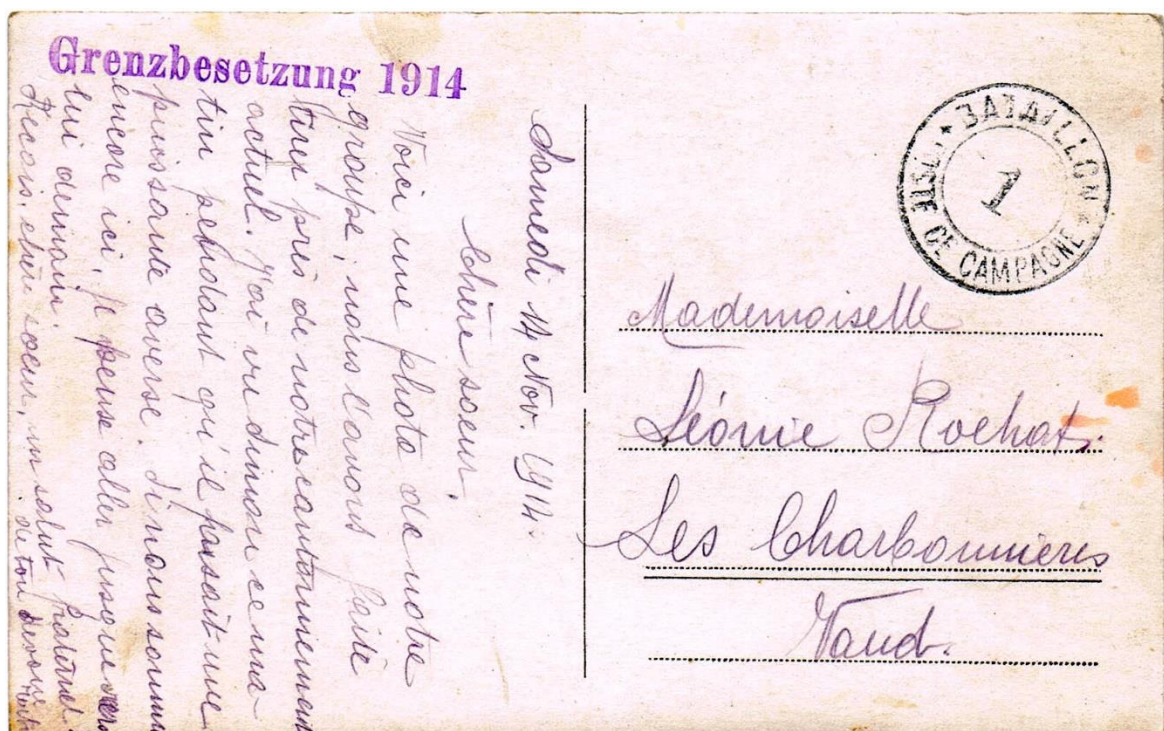 Grenzbesetzung 1914
Samedi 14 Nov. 1914.
Chère soeur,
Voici une photo de notre
groupe, nous l'avons faite
tirer près de notre cantonnement
actuel. J'ai vu Simon ce ma-
tin pendant qu'il faisait une
puissante averse. Si nous sommes
encore ici, je pense aller jusque vers
lui demain.
Reçois, chère soeur, un salut fraternel
de ton dévoué
BATAILLON
1
POSTE DE CAMPAGNE
Mademoiselle
Léonie Rochat.
Les Charbonnières
Vaud.